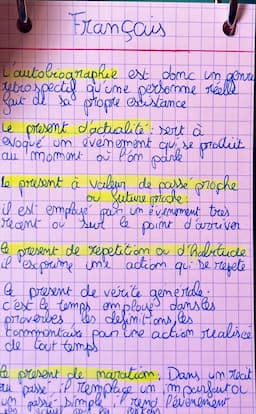 Français
L'autobiographie est donc un genre
retrospectif qu'une personne réelle
fait de sa propre existance
Le présent d'actualité : sert à
évoque un évenement qui se produit
au moment où l'on parle
le présent à valeur de passé proche
ou future proche
il est employé par un évenement très
recent ou sur le point d'arriver
le présent de repetition ou d'habitude
il exprime une action qui se repete
Le présent de vérité générale :
c'est le temps employé dans les
proverbes les définitions, les
commentaire pour une action realisée
de tout temps
Le présent de narration : Dans un récit
au passé, il remplace un imparfait ou
un passé simple, il rend l'évenement